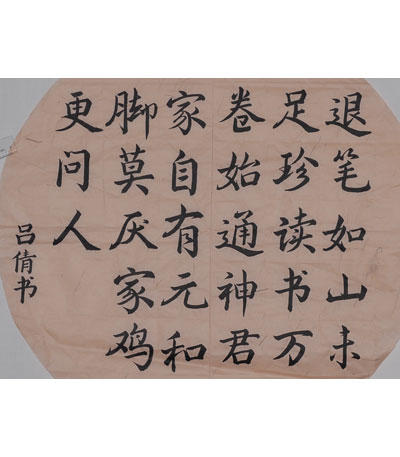 退笔如山未
足珍读书万
卷始通神君
家自有元和
脚莫厌家鸡
更问人
吕倩书